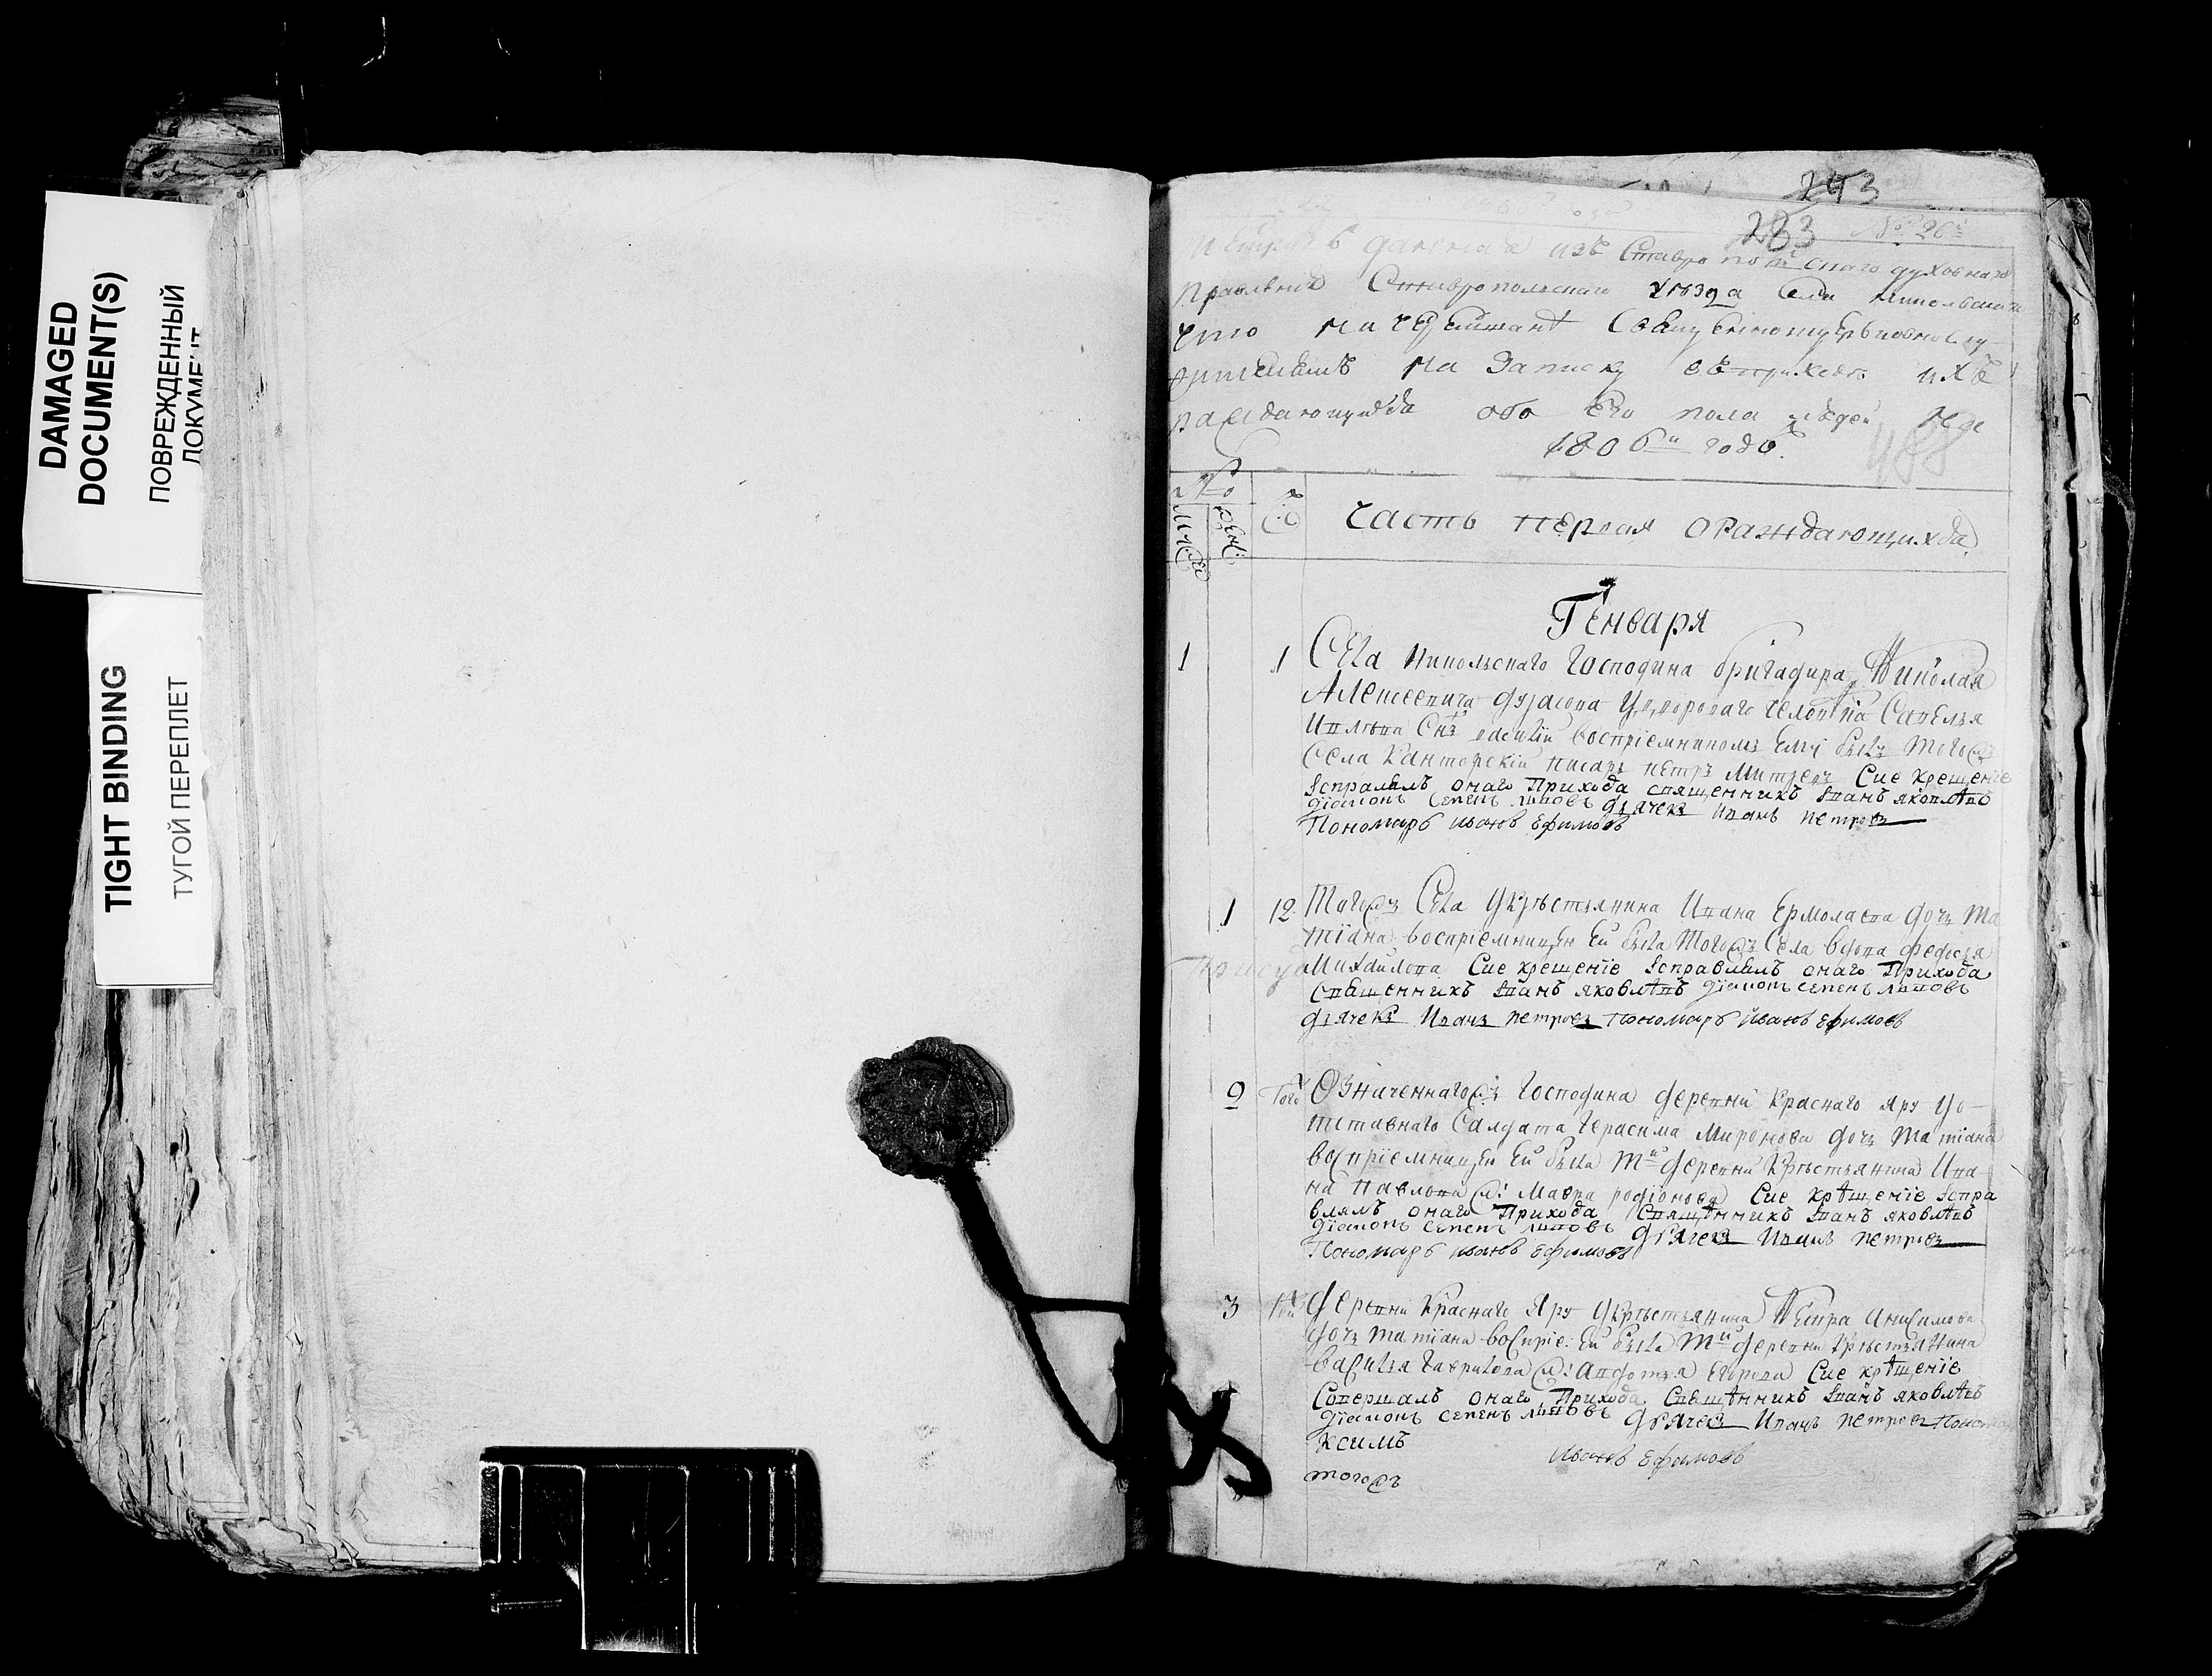 DAMAGED
DOCUMENT(S)
ПОВРЕЖДЕННЫЙ
ДОКУМЕНТ
TIGHT BINDING
ТУГОЙ ПЕРЕПЛЕТ
243
283
№ 26й
дана изъ Ставропольскаго духовнаго
правленія Ставропольскаго уезда села никольскаго
на записку въ приходе ихъ
раждающихся обо его пола людей на
1806й годъ.
488
Часть первая о раждающихся
Генваря
1 1 Села никольскаго Господина бригадира Николая
Алексеевича дурасова у двороваго человека Савелья
Ивлева Снъ василій воспріемникомъ ему былъ тогожъ
Села Канторскій писарь петръ митревъ Сие крещеніе
Isправлялъ онаго Прихода священникъ Iванъ яковлѣвъ
діаконъ Семенъ дьячекъ Иванъ петровъ
Пономарь иванъ Ефимовъ
1 12 Тогожъ Села у крѣстьянина Ивана Ермолаева дочь та
тіана воспріемницею Ей была Тогожъ Села вдова федосья
Михайлова Сие крещеніе Isправлялъ онаго Прихода
Священникъ Iванъ яковлѣвъ діаконъ семенъ
дьячекъ Иванъ петровъ пономарь иванъ ефимовъ
2 того Означеннагожъ Господина деревни Краснаго Яру у о
тставнаго Салдата Герасима Миронова дочь татіана
воспріемницею Ей была тй деревни Крѣстьянина Ива
на павлова ж: Мавра родіонова Сие крѣщеніе Isпра
влялъ онаго Прихода Священникъ Iванъ яковлѣвъ
діаконъ Семенъ дьячекъ Иванъ петровъ
Пономарь иванъ Ефимовъ
3 Деревни Краснаго Яру у крѣстьянина Петра Анисимова
дочь татіана воспріе: Ей была тй деревни крѣстьянина
Василья Гаврилова ж: Авдотья Егорова Сие крѣщеніе
Совершалъ онаго Прихода Священникъ Iванъ яковлѣвъ
діаконъ Семенъ дьячекъ Иванъ петровъ
Ксимъ
иванъ ефимовъ
тогожъ